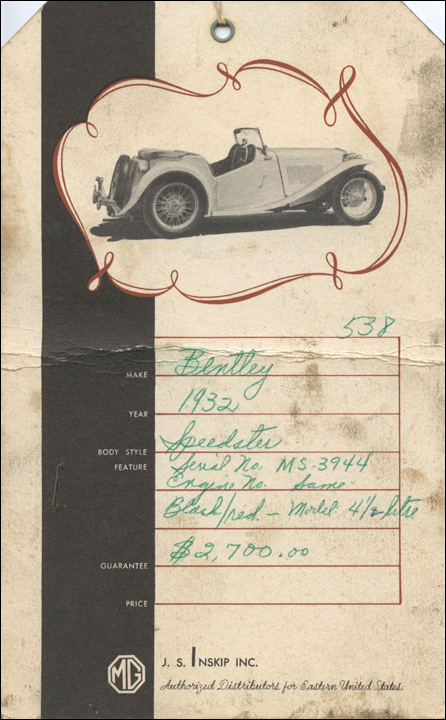 538
MAKE Bentley
YEAR 1932
BODY STYLE Speedster
FEATURE Serial No. MS-3944
Engine No. Same
Black/red - Model 4½ litre
$2,700.00
GUARANTEE
PRICE
MG J. S. INSKIP INC.
Authorized Distributors for Eastern United States